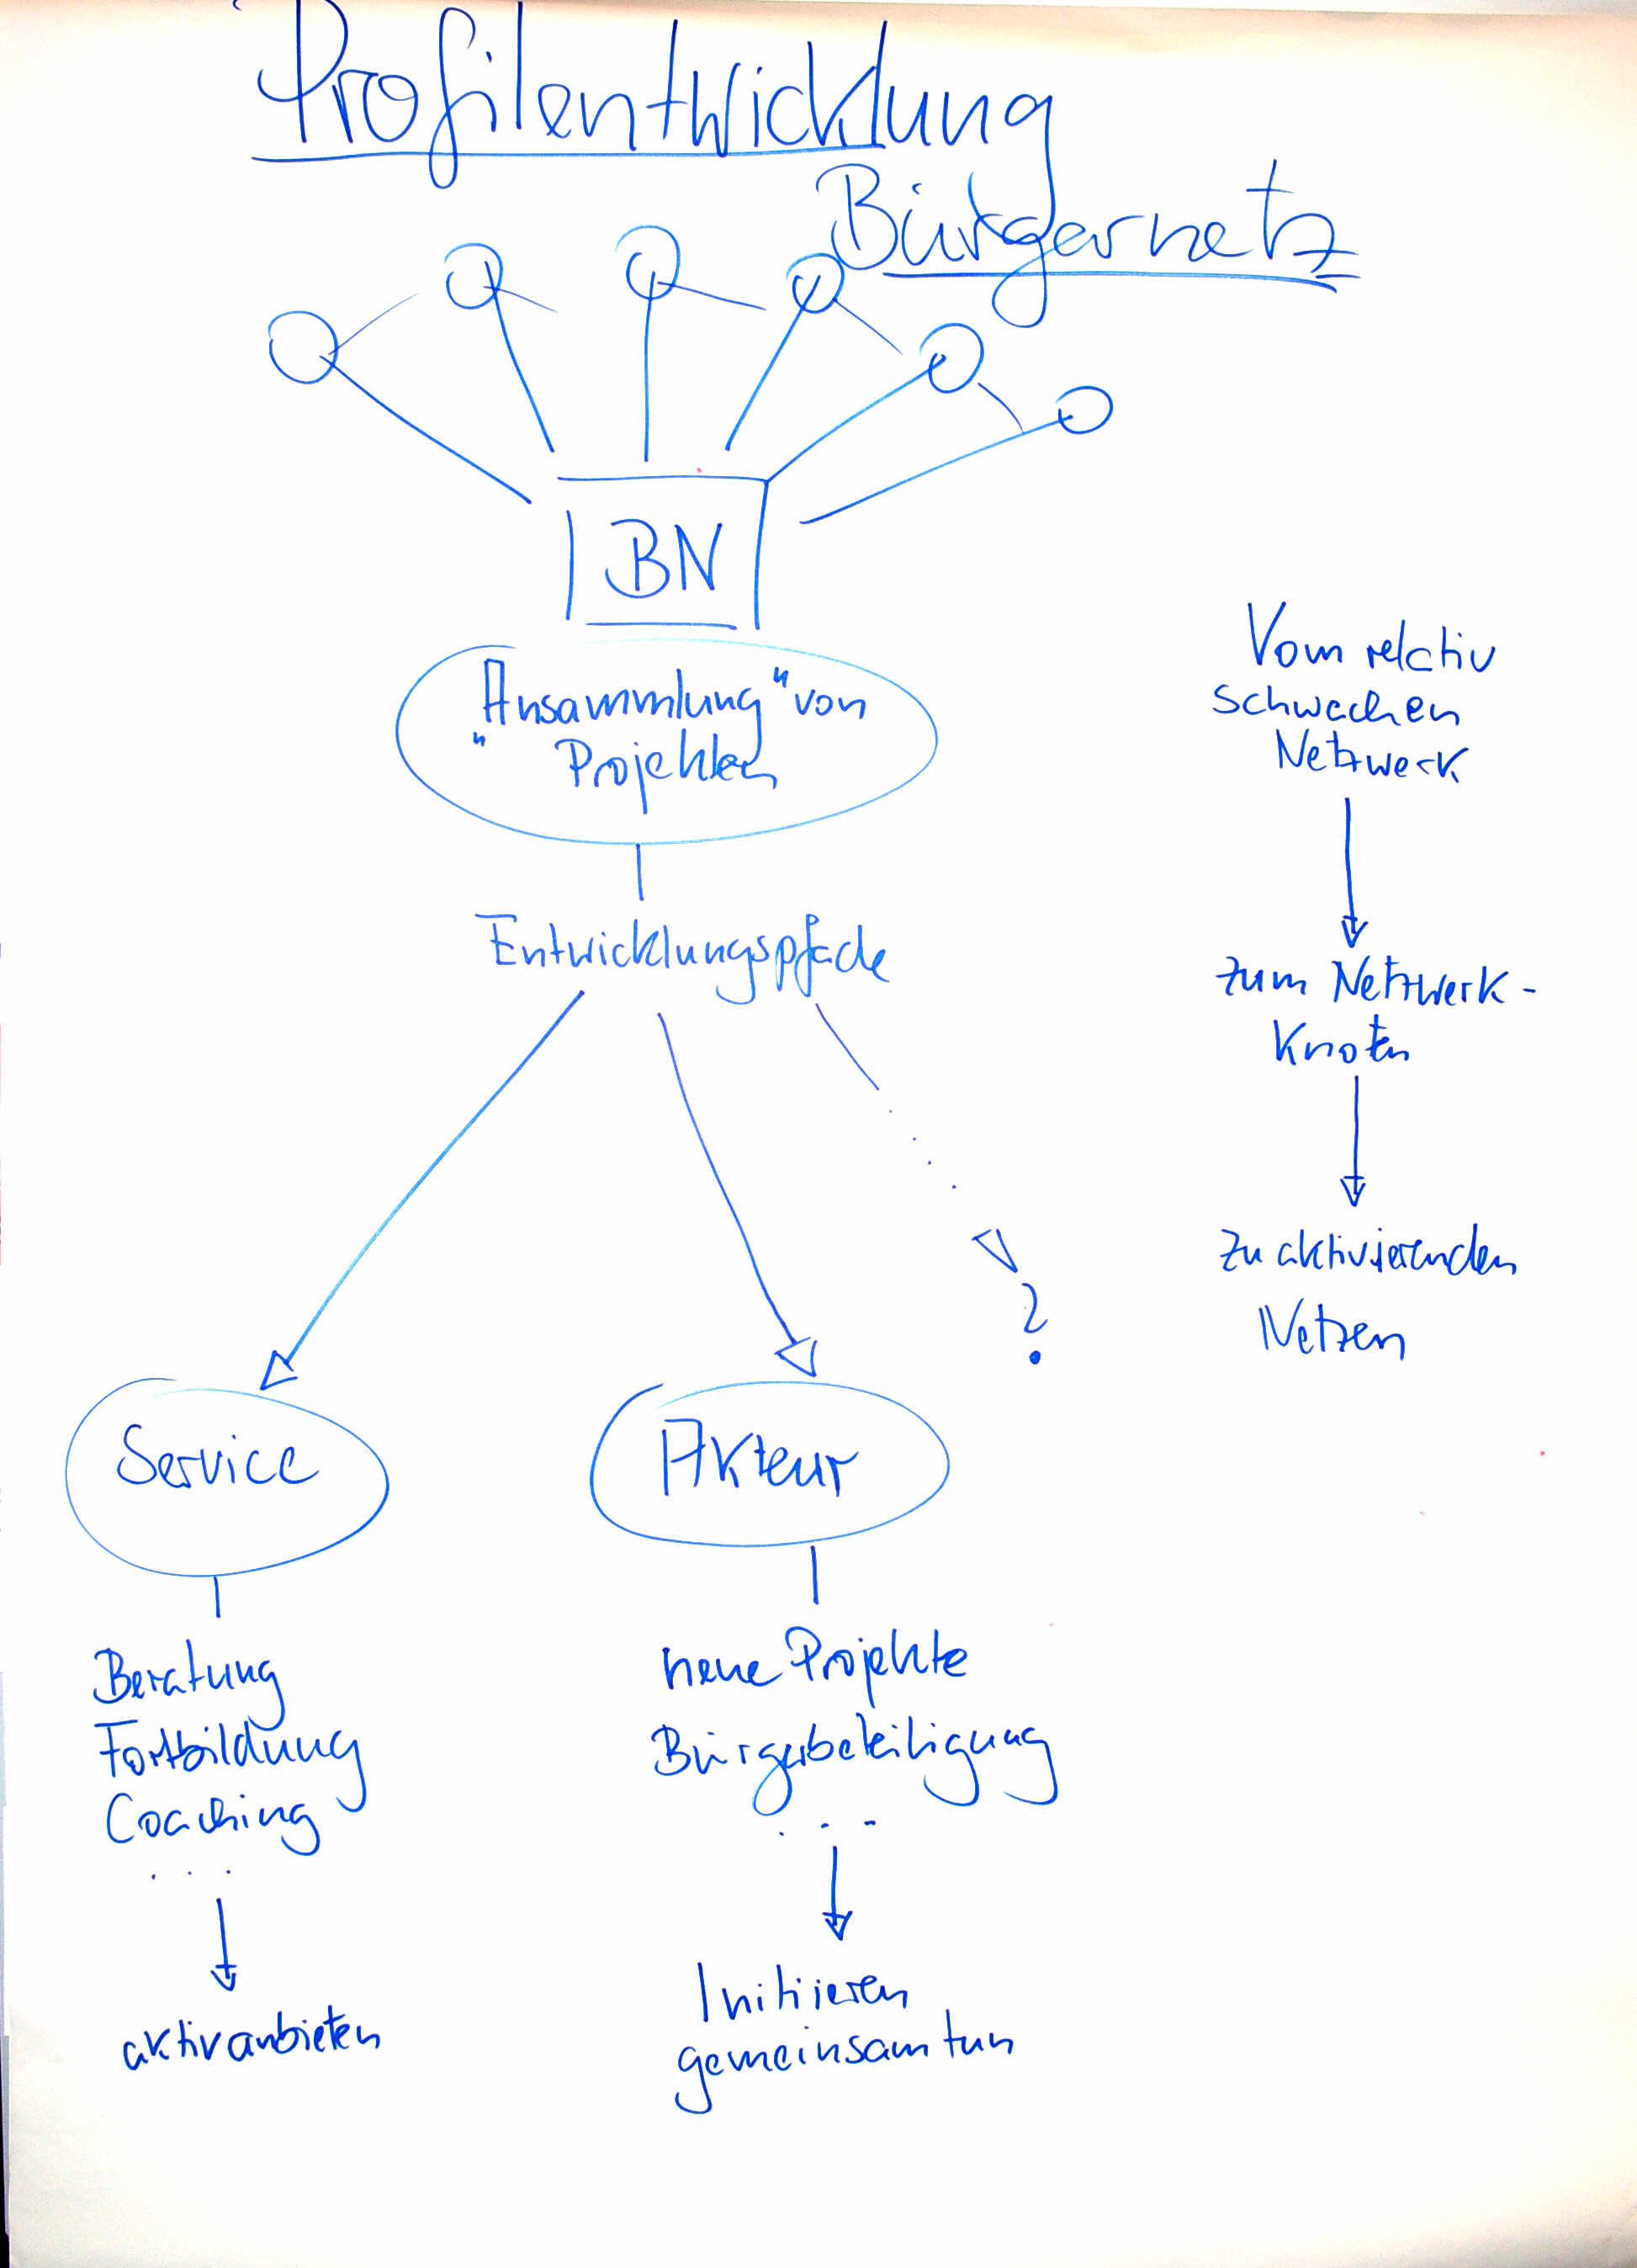 Profilentwicklung
Bürgernetz
BN
"Ansammlung" von
Projekten
Entwicklungspfade
?
Service
Beratung
Fortbildung
Coaching
...
aktiv anbieten
Akteur
neue Projekte
Bürgerbeteiligung
...
Initiieren
gemeinsam tun
Vom relativ
schwachen
Netzwerk
zum Netzwerk-
Knoten
zu aktivierenden
Netzen